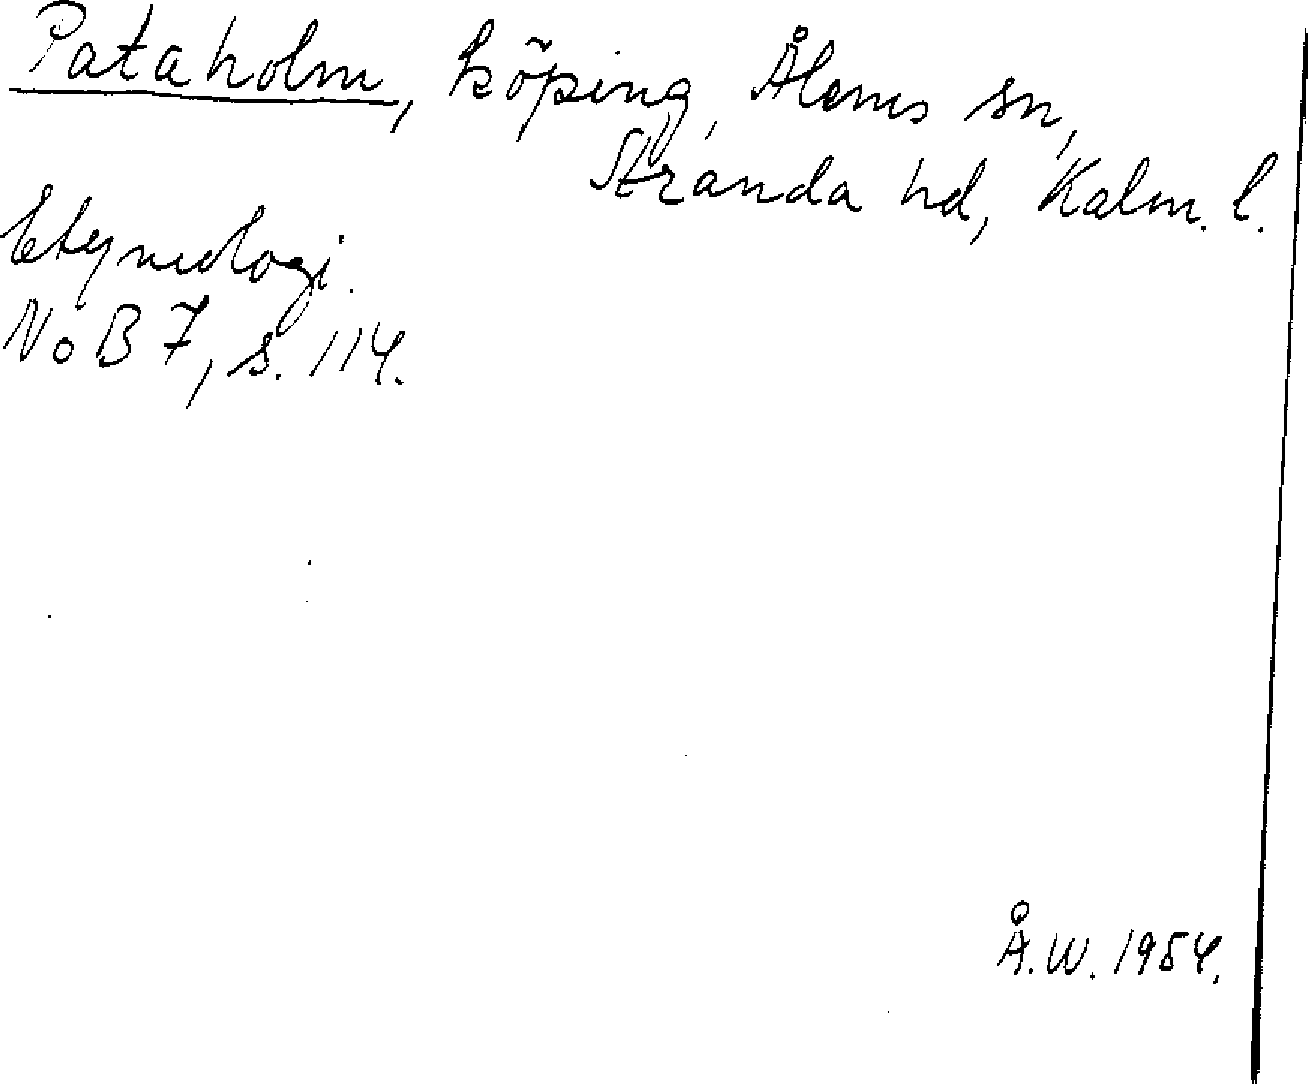 Pataholm, köping, Ålems sn,
Stranda hd, Kalm. l.
Etymologi.
NoB 7, s. 114.
Å.W. 1954.